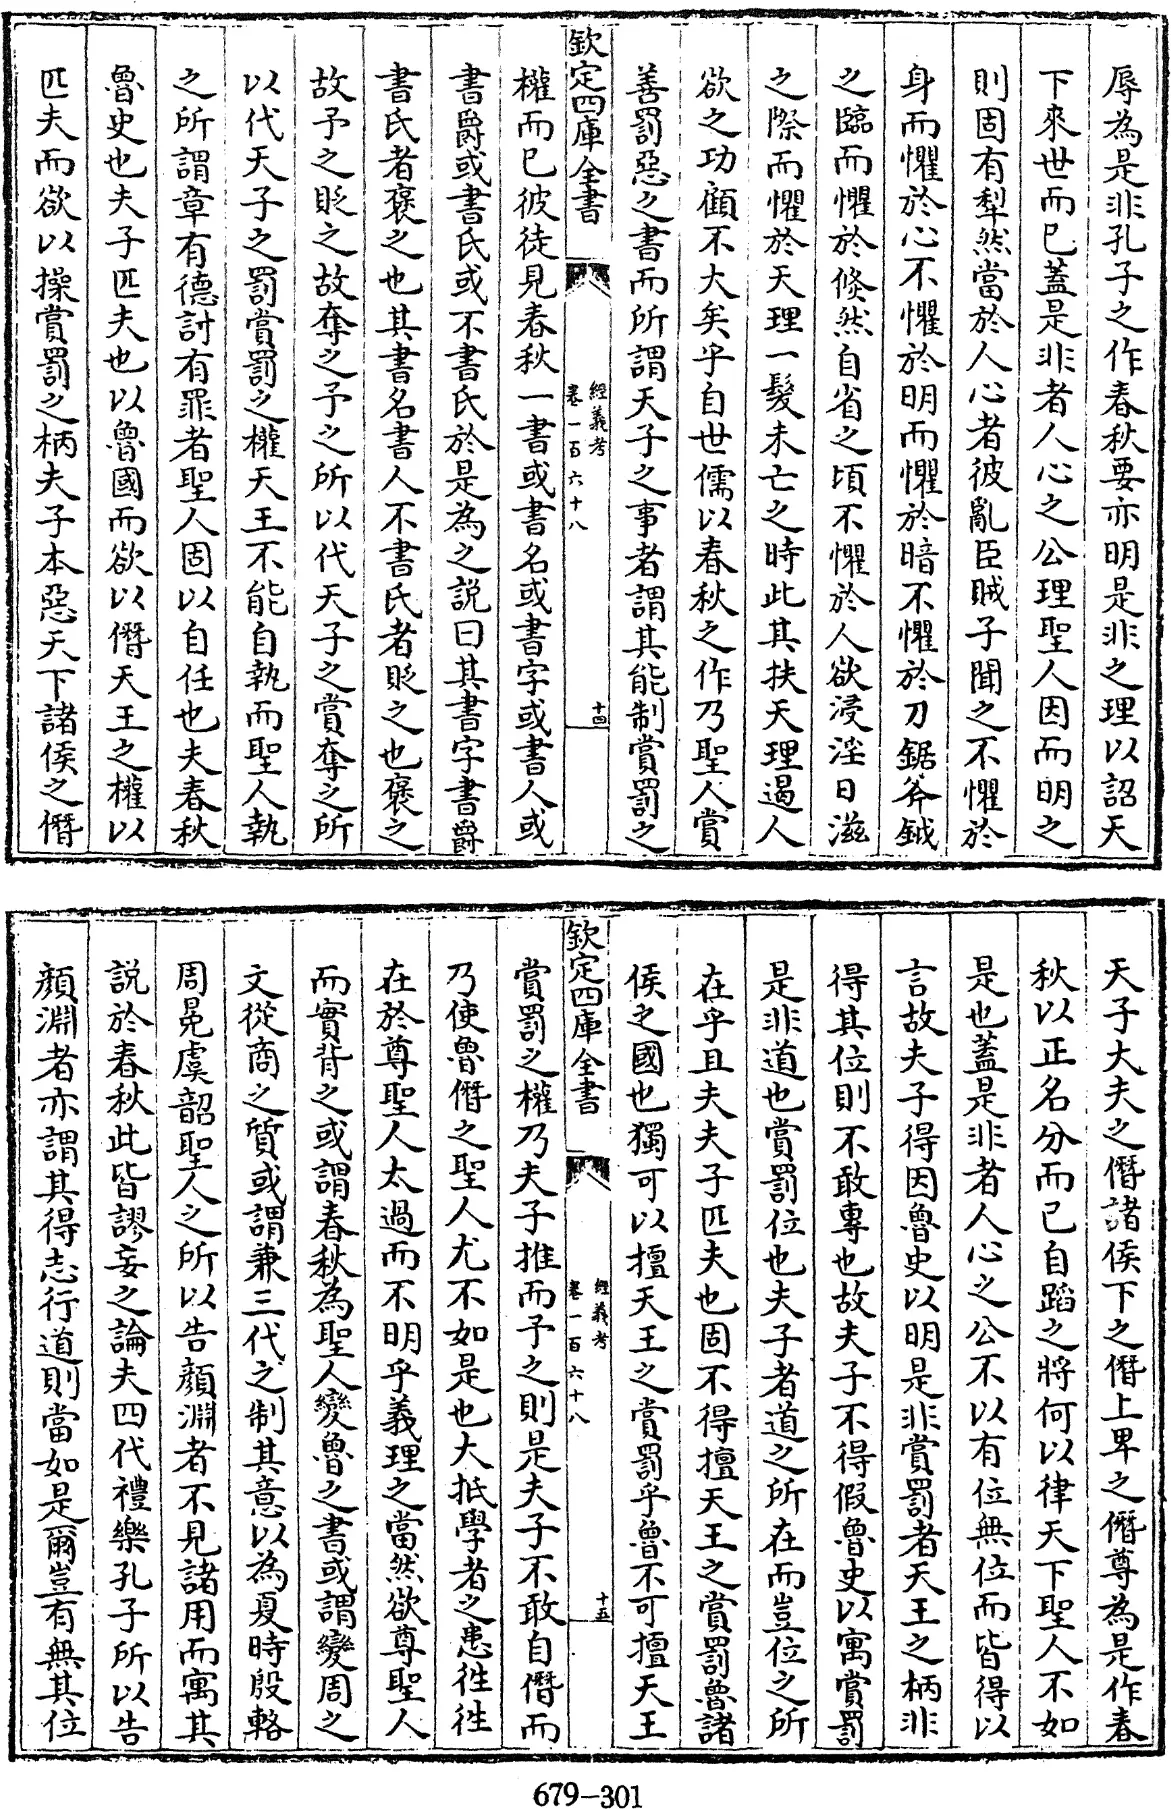 辱為是非孔子之作春秋要亦明是非之理以詔天
下來世而已蓋是非者人心之公理聖人因而明之
則固有犁然當於人心者彼亂臣賊子聞之不懼於
身而懼於心不懼於明而懼於暗不懼於刀鋸斧鉞
之臨而懼於倐然自省之頃不懼於人欲浸淫日滋
之際而懼於天理一髮未亡之時此其扶天理遏人
欲之功顧不大矣乎自世儒以春秋之作乃聖人賞
善罰惡之書而所謂天子之事者謂其能制賞罰之
欽定四庫全書
經義考
卷一百六十八
十四
權而已彼徒見春秋一書或書名或書字或書人或
書爵或書氏或不書氏於是為之説曰其書字書爵
書氏者褒之也其書名書人不書氏者貶之也褒之
故予之貶之故奪之予之所以代天子之賞奪之所
以代天子之罰賞罰之權天王不能自執而聖人執
之所謂章有德討有罪者聖人固以自任也夫春秋
魯史也夫子匹夫也以魯國而欲以僭天王之權以
匹夫而欲以操賞罰之柄夫子本惡天下諸侯之僭
天子大夫之僭諸侯下之僭上卑之僭尊為是作春
秋以正名分而已自蹈之將何以律天下聖人不如
是也蓋是非者人心之公不以有位無位而皆得以
言故夫子得因魯史以明是非賞罰者天王之柄非
得其位則不敢專也故夫子不得假魯史以寓賞罰
是非道也賞罰位也夫子者道之所在而豈位之所
在乎且夫夫子匹夫也固不得擅天王之賞罰魯諸
侯之國也獨可以擅天王之賞罰乎魯不可擅天王
欽定四庫全書
經義考
卷一百六十八
十五
賞罰之權乃夫子推而予之則是夫子不敢自僭而
乃使魯僭之聖人尤不如是也大抵學者之患徃徃
在於尊聖人太過而不明乎義理之當然欲尊聖人
而實背之或謂春秋為聖人變魯之書或謂變周之
文從商之質或謂兼三代之制其意以為夏時殷輅
周冕虞韶聖人之所以告顏淵者不見諸用而寓其
説於春秋此皆謬妄之論夫四代禮樂孔子所以告
顏淵者亦謂其得志行道則當如是爾豈有無其位
679-301